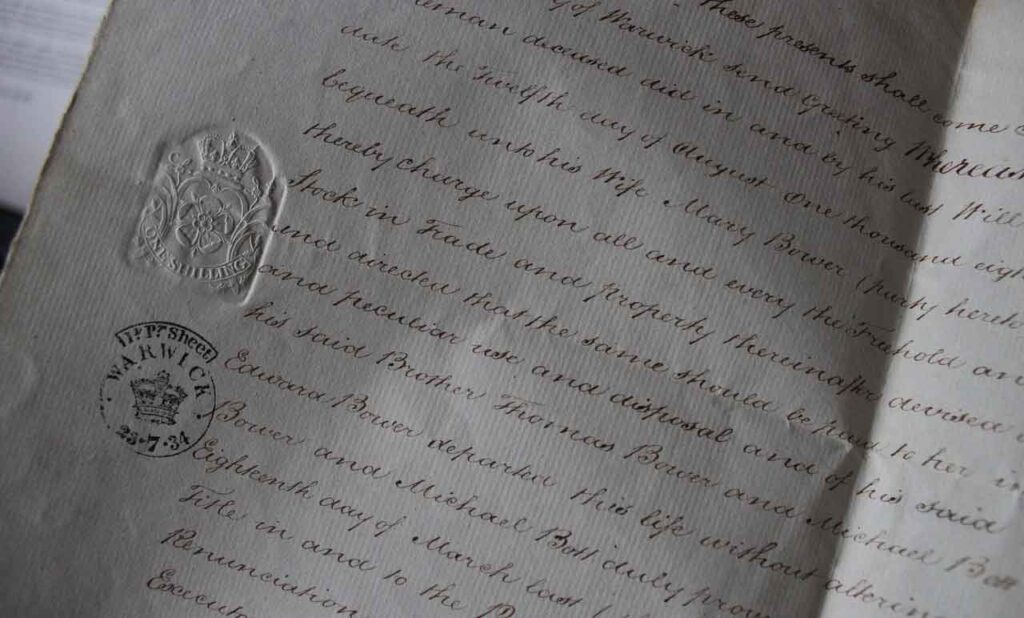 these presents shall come
of Warwick send Greeting Whereas
deceased did in and by his last Will
date the Twelfth day of August One thousand eigh
bequeath unto his Wife Mary Bower (party hereto
thereby charge upon all and every the Freehold an
Stock in Trade and property thereinafter devised
and directed that the same should be paid to her in
and peculiar use and disposal and of his said
his said Brother Thomas Bower and Michael Bott
Edward Bower departed this life without altering
Bower and Michael Bott duly prov
Eighteenth day of March last
Title in and to the
Renunciation
Execut
ONE SHILLING
11d Pr Sheet
WARWICK
23·7·34